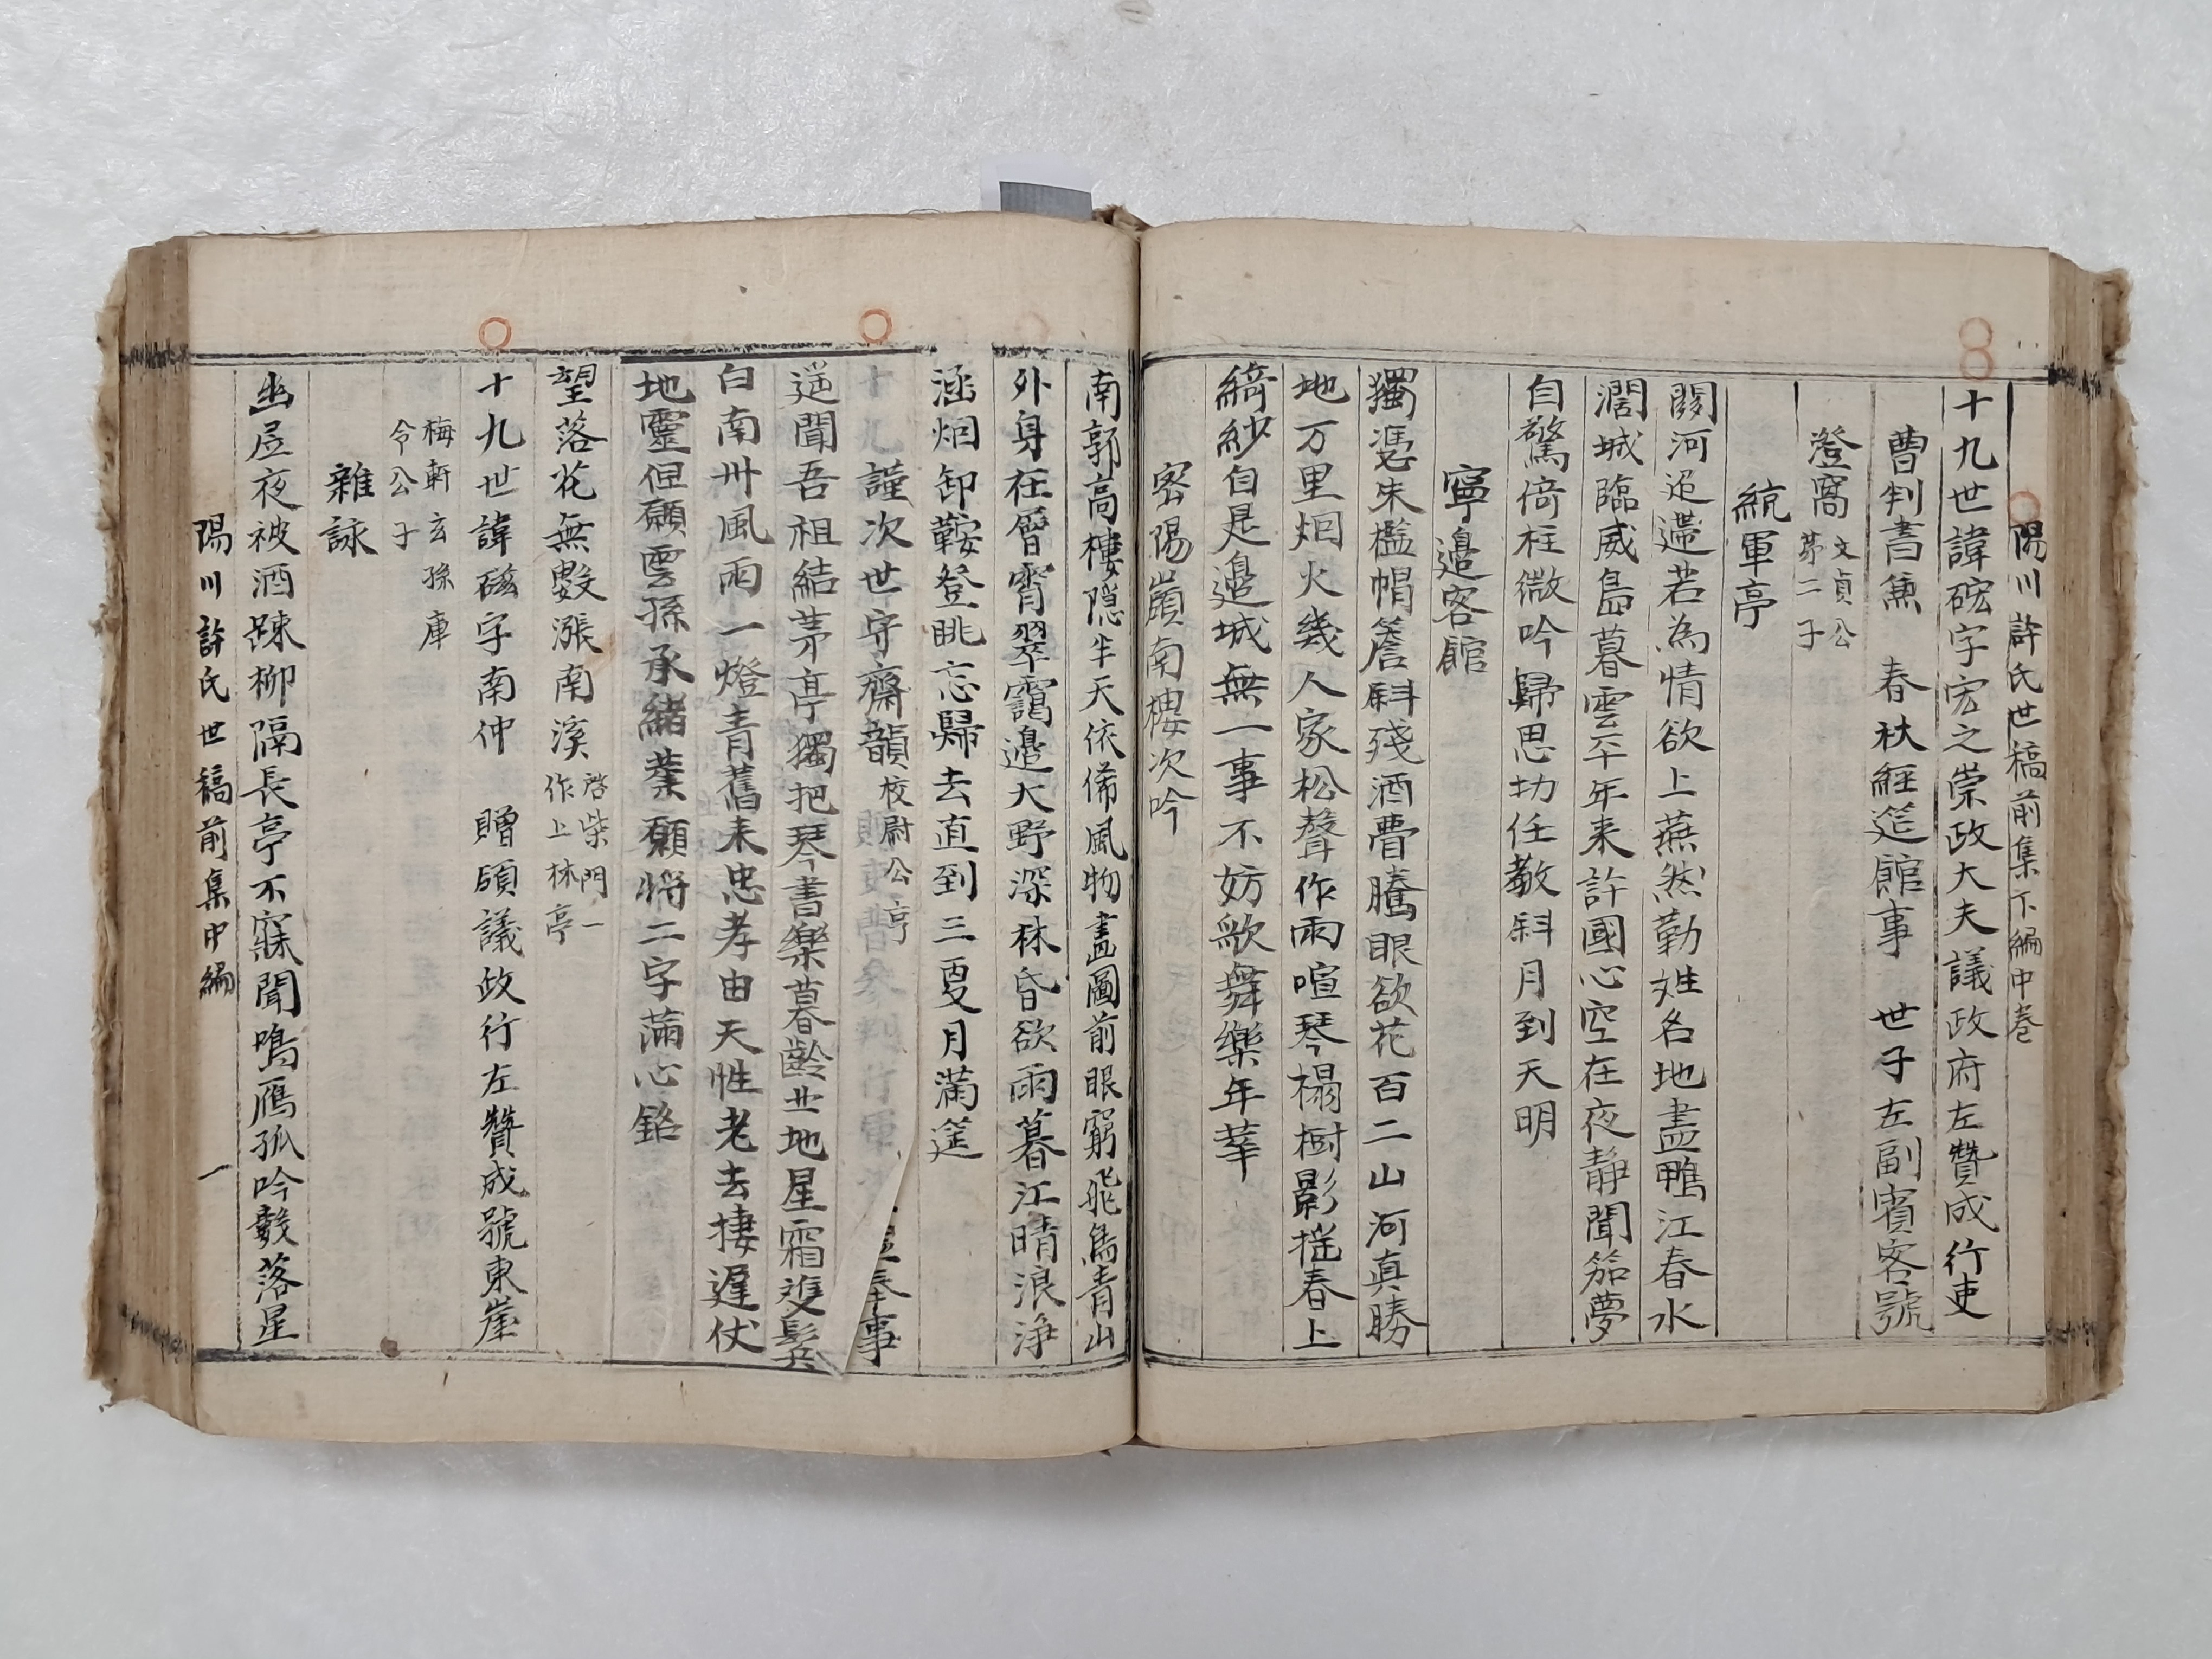 陽川許氏世稿前集下編中卷
十九世諱硡字宏之崇政大夫議政府左贊成行吏
曹判書兼 春秋經筵館事 世子左副賓客號
澄窩 文貞公
第二子
統軍亭
關河迢遰若為情欲上蕪然勤姓名地盡鴨江春水
濶城臨威島暮雲平年来許國心空在夜靜聞笳夢
自驚倚柱微吟歸思功任教斜月到天明
寧邊客館
獨憑朱檻帽簷斜殘酒曹騰眼欲花百二山河真勝
地万里烟火幾人家松聲作雨喧琴榻樹影摇春上
綺紗自是邊城無一事不妨歌舞樂年華
密陽嶺南樓次吟
南郭高樓隠半天依俙風物畫圖前眼窮飛鳥青山
外身在層霄翠靄邊大野深林昏欲雨暮江晴浪浄
涵烟卸鞍登眺忘歸去直到三更月滿筵
謹次世守齋韻 校尉公亭
遥聞吾祖結茅亭獨把琴書樂暮齡廿地星霜雙鬂
白南州風雨一燈青舊来忠孝由天性老去捿遲仗
地靈但願雲孫承緒業願将二字滿心銘
望落花無數漲南溪 啓柴門一
作上林亭
十九世諱磁字南仲 贈領議政行左贊成號東崖
梅軒玄孫庫
令公子
雜詠
幽居夜被酒踈柳隔長亭不寐聞鳴鴈孤吟數落星
陽川許氏世稿前集中編 一